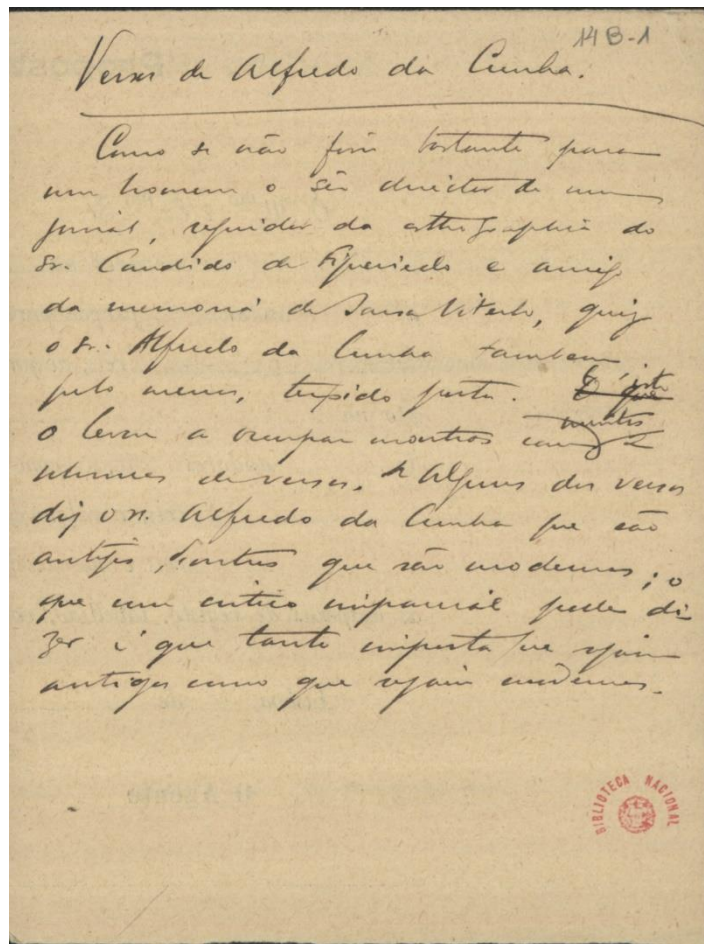 14B-1
Versos de Alfredo da Cunha.
Como se não fosse bastante para
um homem o ser director de um
jornal, seguidor da orthographia do
sr. Candido de Figueiredo e amigo
da memoria de Sousa Viterbo, quiz
o sr. Alfredo da Cunha tambem ser,
pelo menos, tepido poeta. E isto
o levou a occupar-nos com muitos
volumes de versos. Alguns dos versos
diz o sr. Alfredo da Cunha que são
antigos, e outros que são modernos; o
que um critico imparcial pode di-
zer é que tanto importa que sejam
antigos como que sejam modernos.
BIBLIOTECA NACIONAL